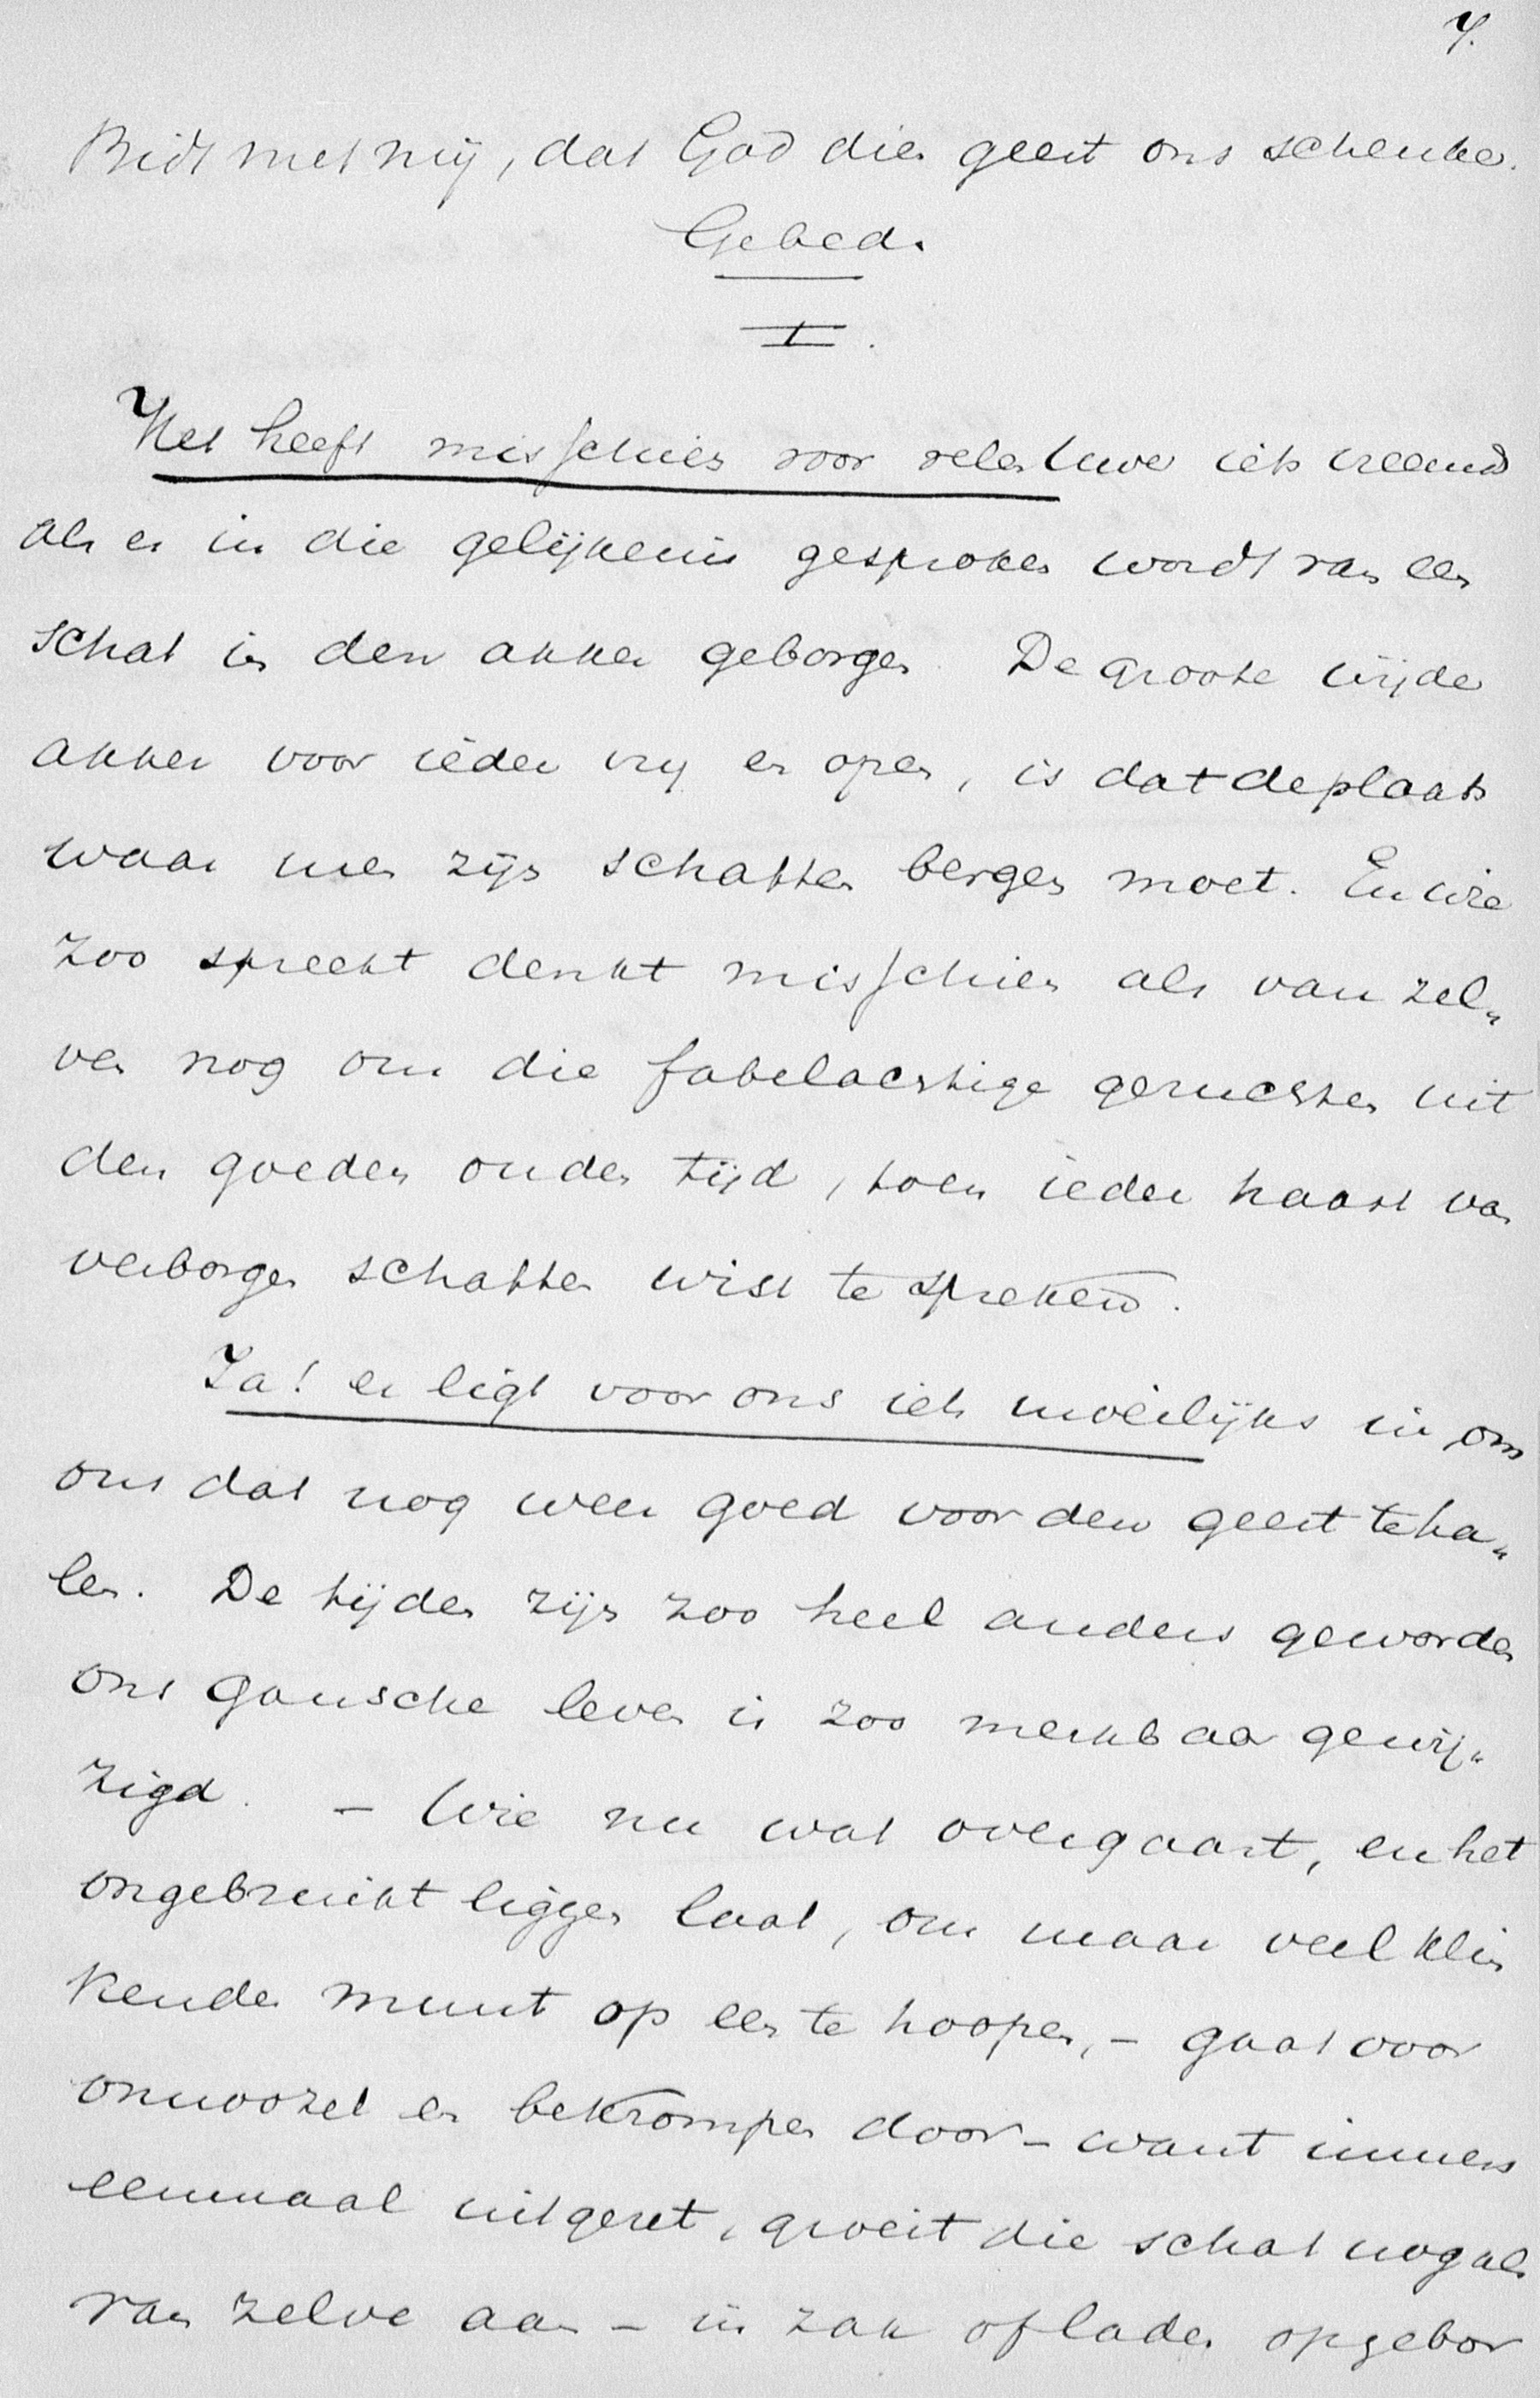 7.
Bidt met mij, dat God dien geest ons schenke.
Gebed.
I.
Het heeft misschien voor velen Uwer iets vreemds
als er in die gelijkenis gesproken wordt van een
schat in den akker geborgen. De groote wijde
akker voor ieder vrij en open, is dat de plaats
waar men zijn schatten bergen moet. En wie
zoo spreekt denkt misschien als van zel„
ven nog om die fabelachtige geruchten uit
den goeden ouden tijd, toen ieder haast van
verborgen schatten wist te spreken.
Ja! er ligt voor ons iets moeilijks in, om
ons dat nog weer goed voor den geest te ha„
len. De tijden zijn zoo heel anders geworden
ons gansche leven is zoo merkbaar gewij„
zigd. – Wie nu wat overgaart, en het
ongebruikt liggen laat, om maar veel klin
kende munt op een te hoopen, – gaat voor
onnoozel en bekrompen door – want immers
eenmaal uitgezet, groeit die schat nog als
van zelve aan – in zak of lade, opgebor